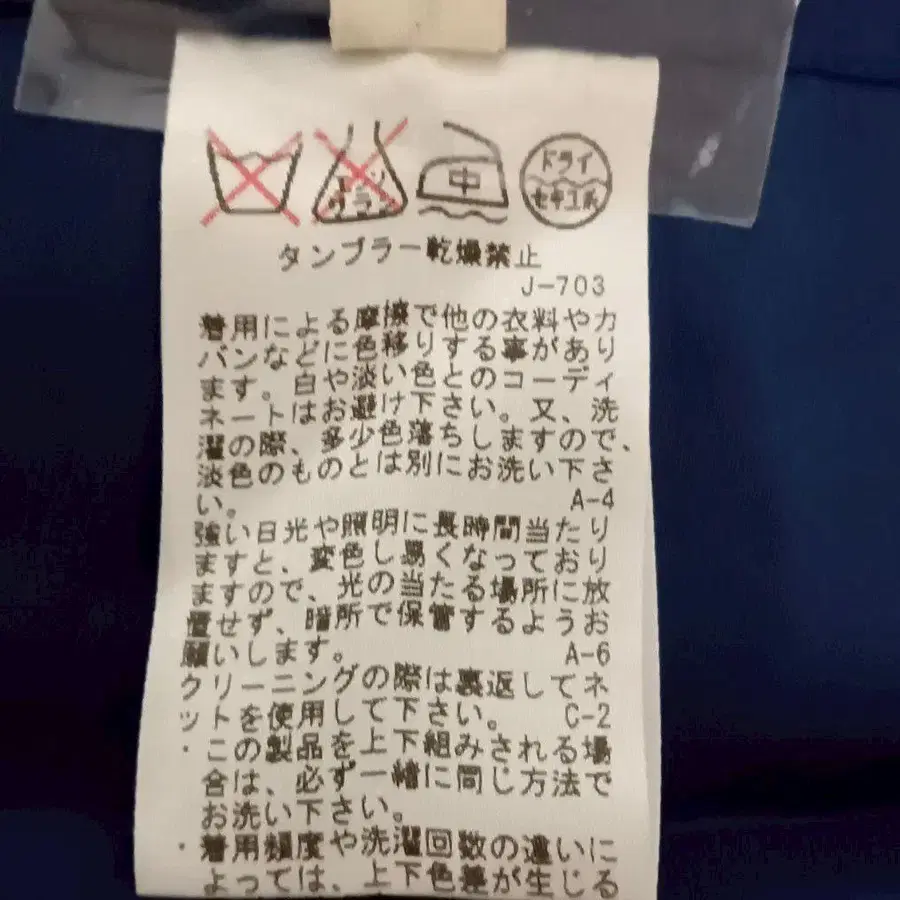 エンソ
サラシ
中
ドライ
セキユ系
タンブラー乾燥禁止
J-703
着用による摩擦で他の衣料やカ
バンなどに色移りする事があり
ます。白や淡い色とのコーディ
ネートはお避け下さい。又、洗
濯の際、多少色落ちしますので、
淡色のものとは別にお洗い下さ
い。 A-4
強い日光や照明に長時間当たり
ますと、変色し易くなっており
ますので、光の当たる場所に放
置せず、暗所で保管するようお
願いします。 A-6
クリーニングの際は裏返してネ
ットを使用して下さい。 C-2
・この製品を上下組みされる場
合は、必ず一緒に同じ方法で
お洗い下さい。
・着用頻度や洗濯回数の違いに
よっては、上下色差が生じる